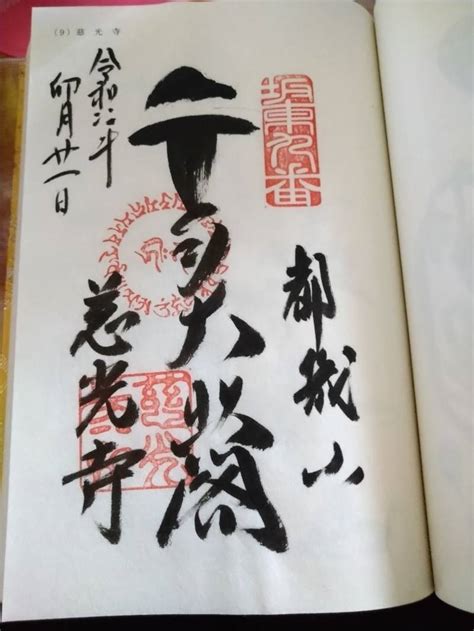 (9) 慈光寺
坂東九番
都幾山
千手大悲閣
慈光寺
令和 年
卯月廿一日